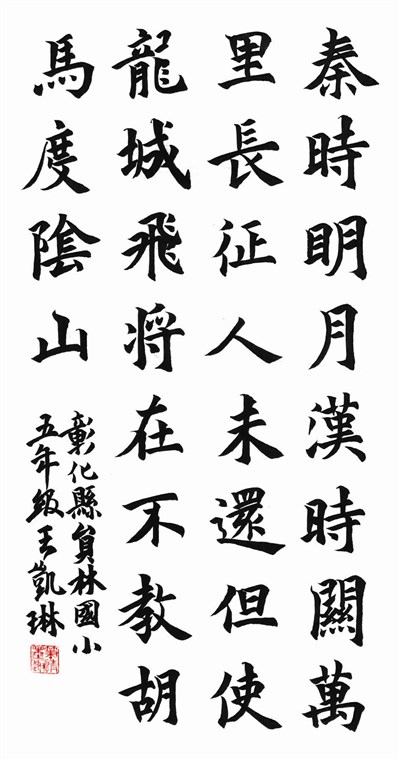 秦時明月漢時關萬
里長征人未還但使
龍城飛將在不教胡
馬度陰山
彰化縣員林國小
五年級王凱琳